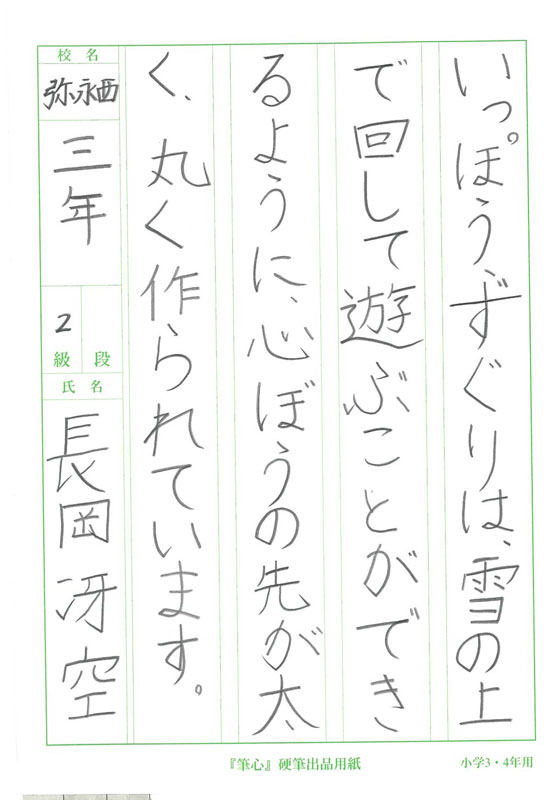 いっぽう、ずぐりは、雪の上
で回して遊ぶことができ
るように、心ぼうの先が太
く、丸く作られています。
校名
弥永西
三年
2
級 段
氏名
長岡冴空
『筆心』硬筆出品用紙
小学3・4年用